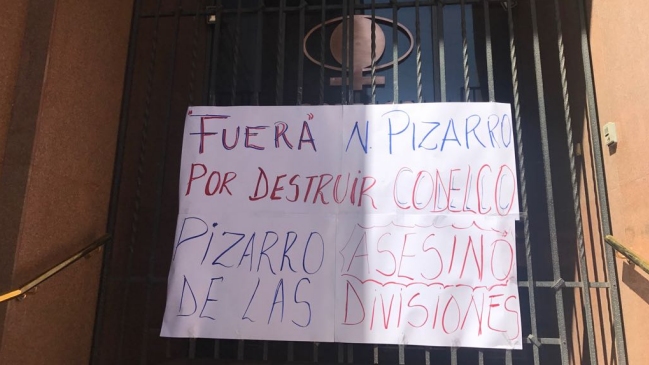 "FUERA" N. PIZARRO
POR DESTRUIR CODELCO
PIZARRO ASESINO
DE LAS DIVISIONES